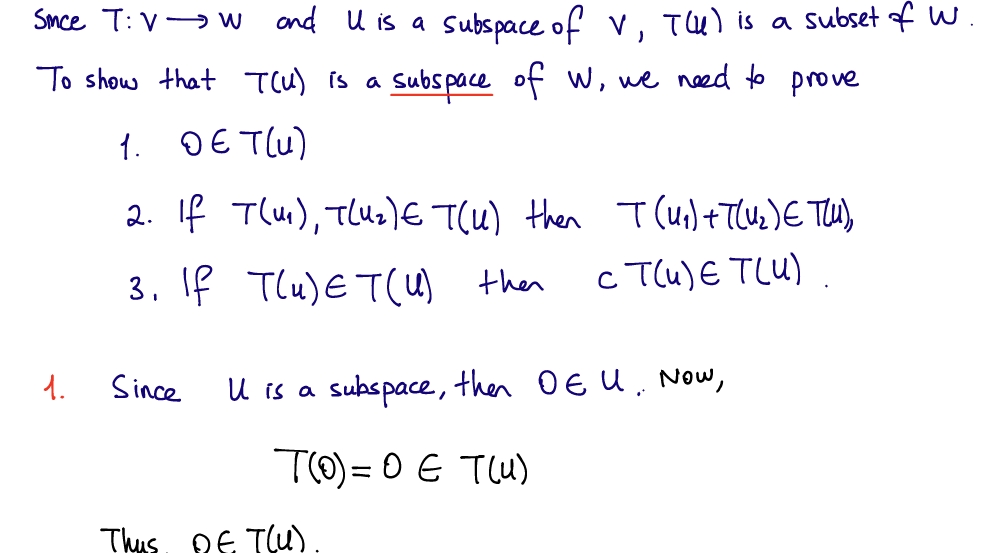 Since T: V → W and U is a subspace of V, T(U) is a subset of W.
To show that T(U) is a subspace of W, we need to prove
1. 0 ∈ T(U)
2. If T(u₁), T(u₂) ∈ T(U) then T(u₁)+T(u₂) ∈ T(U),
3. If T(u) ∈ T(U) then c T(u) ∈ T(U).
1. Since U is a subspace, then 0 ∈ U. Now,
T(0) = 0 ∈ T(U)
Thus, 0 ∈ T(U).